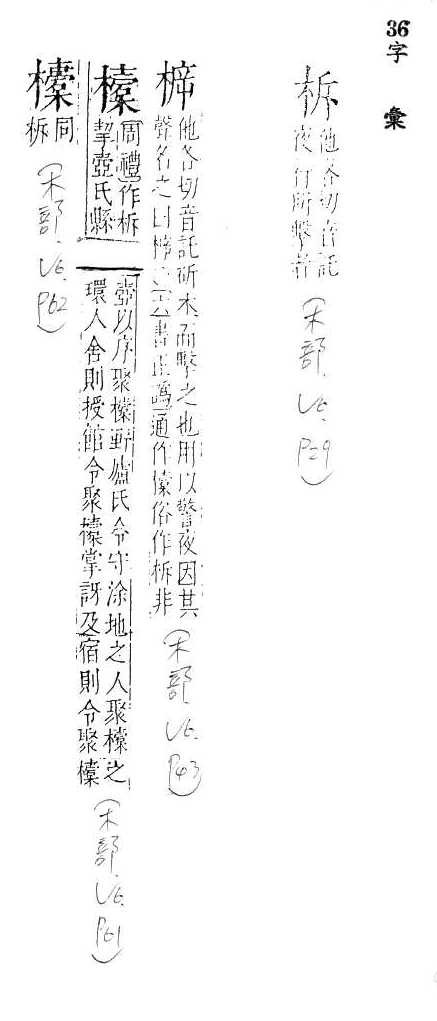 36
字彙
柝
他各切音託
夜行所擊者
(木部. V6. P29)
㭼
他各切音託斫木而擊之也用以警夜因其
聲名之曰㭼六書正譌通作㯓俗作柝非
(木部. V6. P43)
㯓
周禮作柝
挈壺氏縣
壺以序聚㯓野廬氏令守涂地之人聚㯓之
環人舍則授館令聚㯓掌訝及宿則令聚㯓
(木部. V6. P61)
欜
同
柝
(木部. V6. P62)